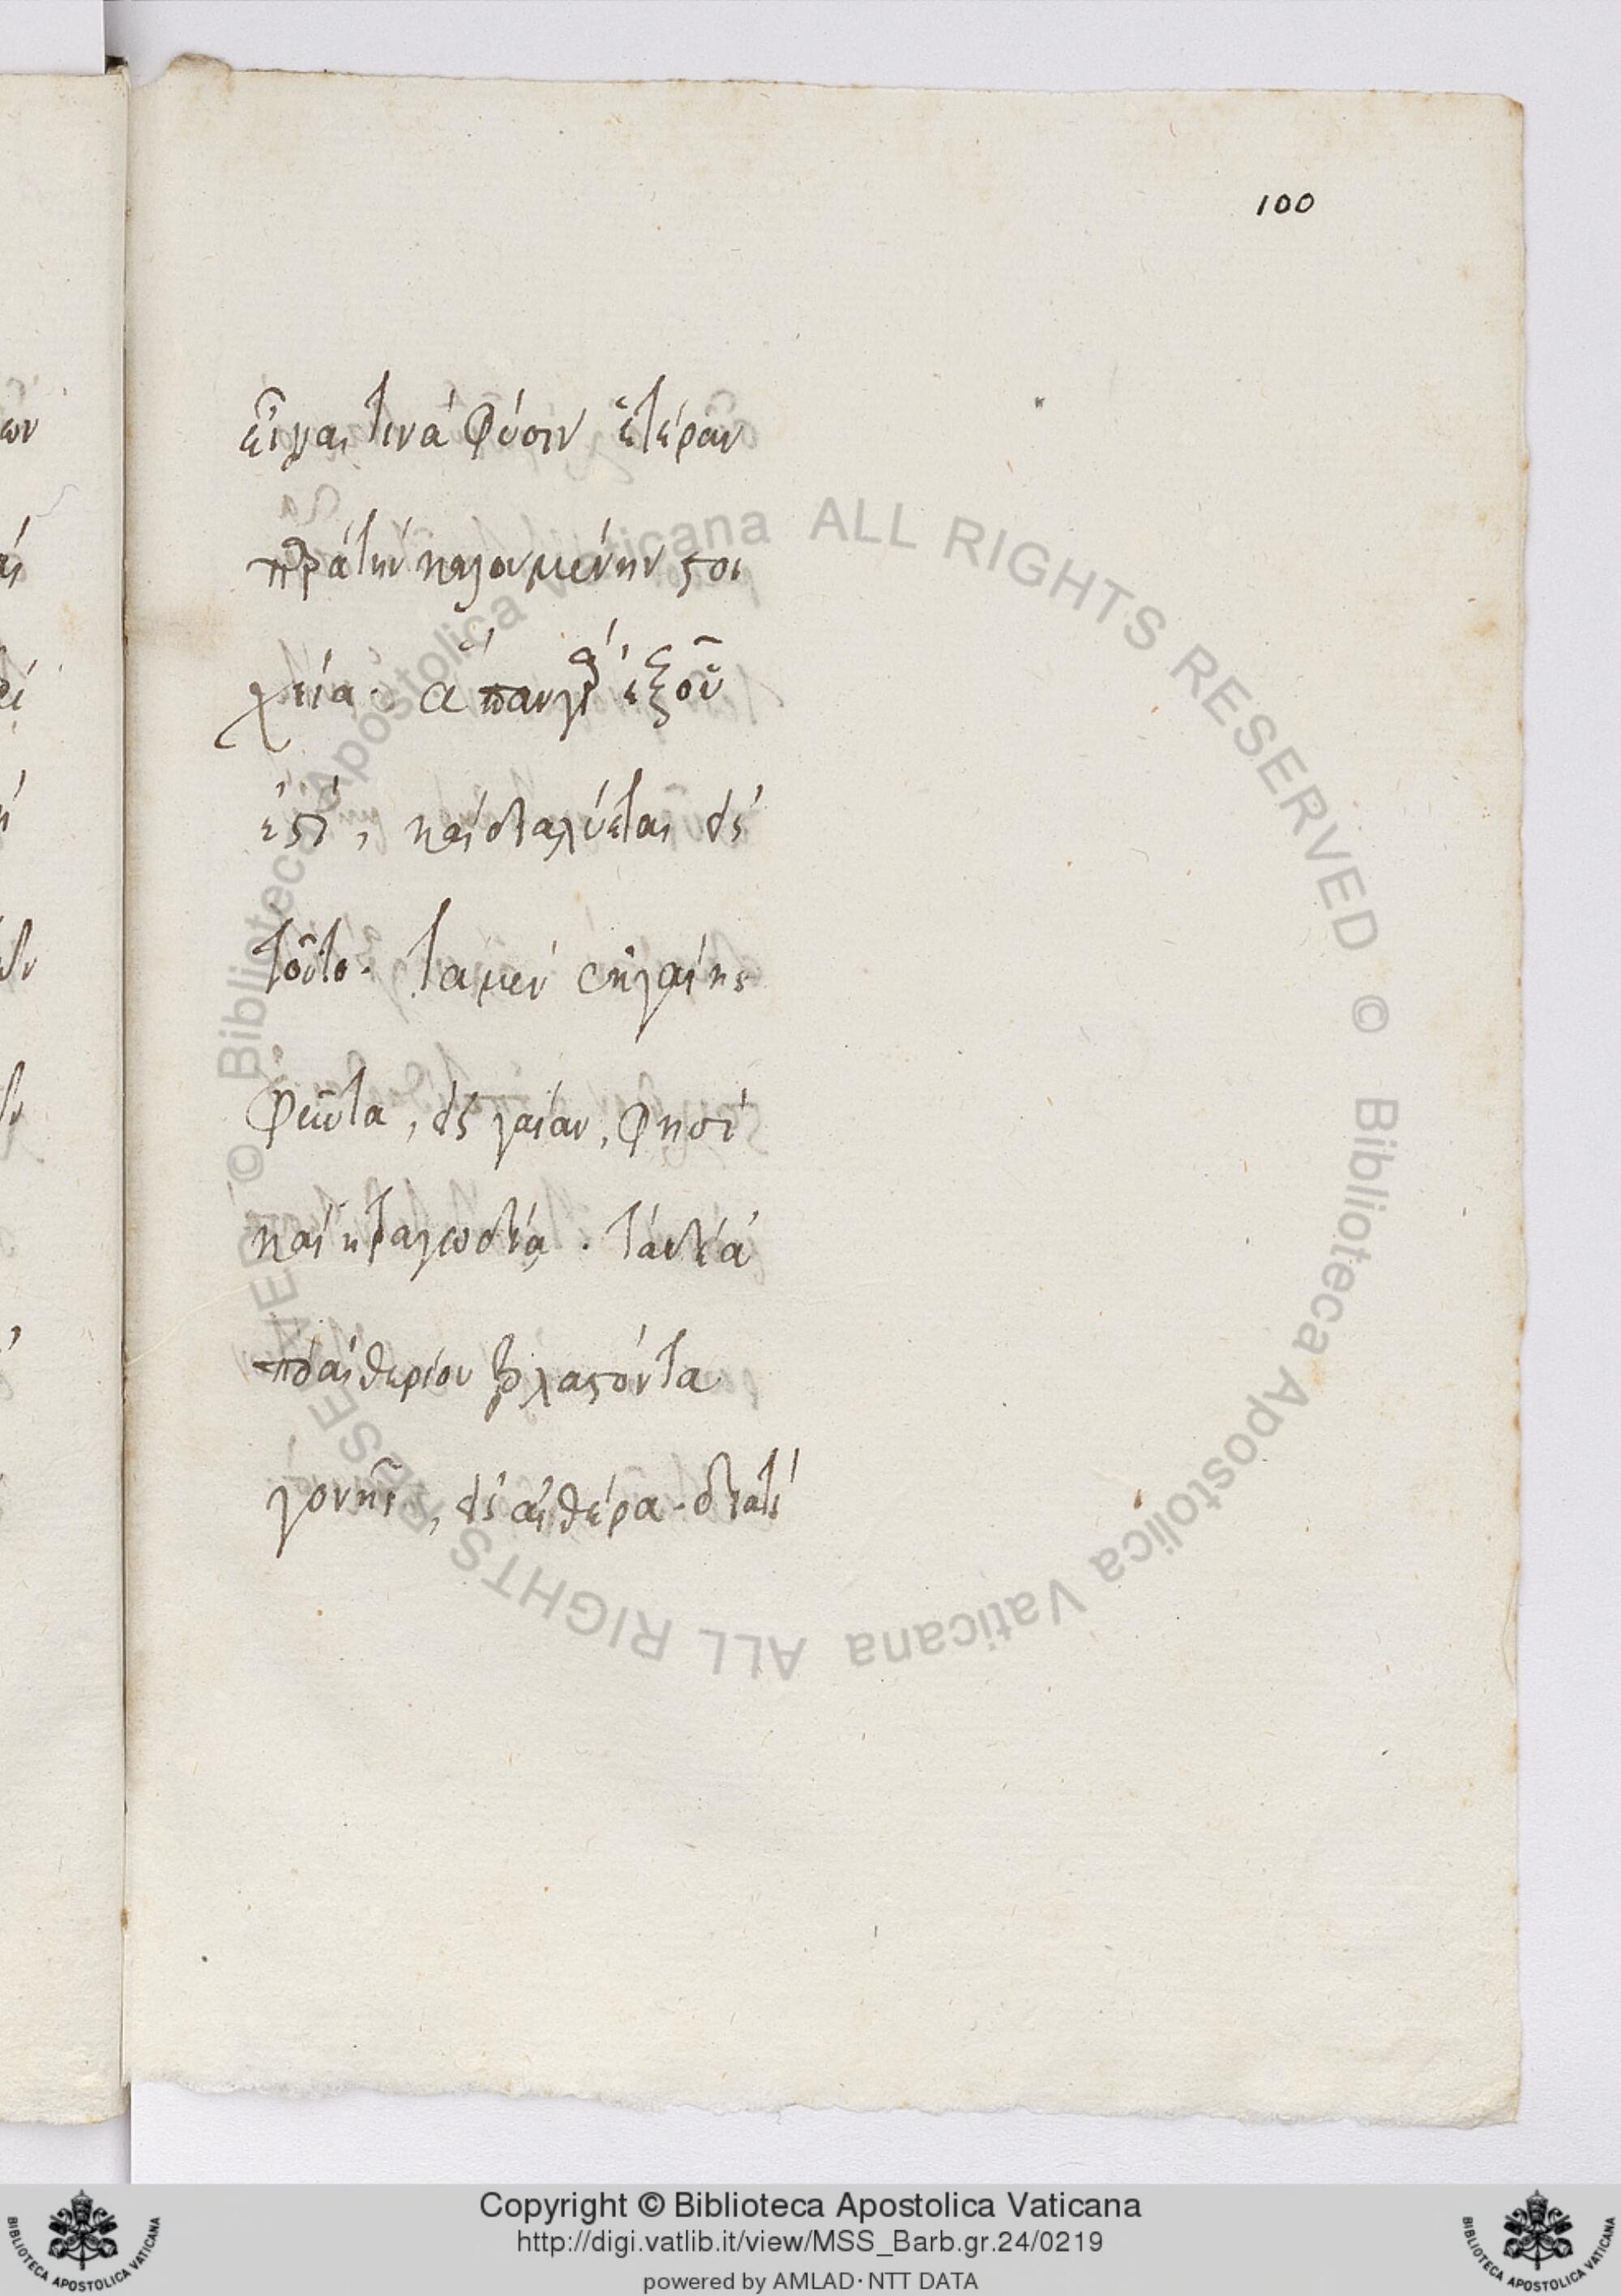 100
εἶναι τινὰ φύσιν ἑτέραν
πράτην καλουμένην στοι
χεῖα. ἅπαν γὰρ ἐξ οὗ
ἐστὶ, καὶ διαλύεται εἰς
τοῦτο. τὰ μὲν ἐκ γαίης
φῶτα, εἰς γαῖαν, φησὶ
καὶ
αἰθερίου βλαστόντα
γονῆς, εἰς αἰθέρα. διατί
ALL RIGHTS RESERVED © Biblioteca Apostolica Vaticana
ALL RIGHTS RESERVED © Biblioteca Apostolica Vaticana
Copyright © Biblioteca Apostolica Vaticana
http://digi.vatlib.it/view/MSS_Barb.gr.24/0219
powered by AMLAD·NTT DATA
BIBLIOTECA APOSTOLICA VATICANA
BIBLIOTECA APOSTOLICA VATICANA